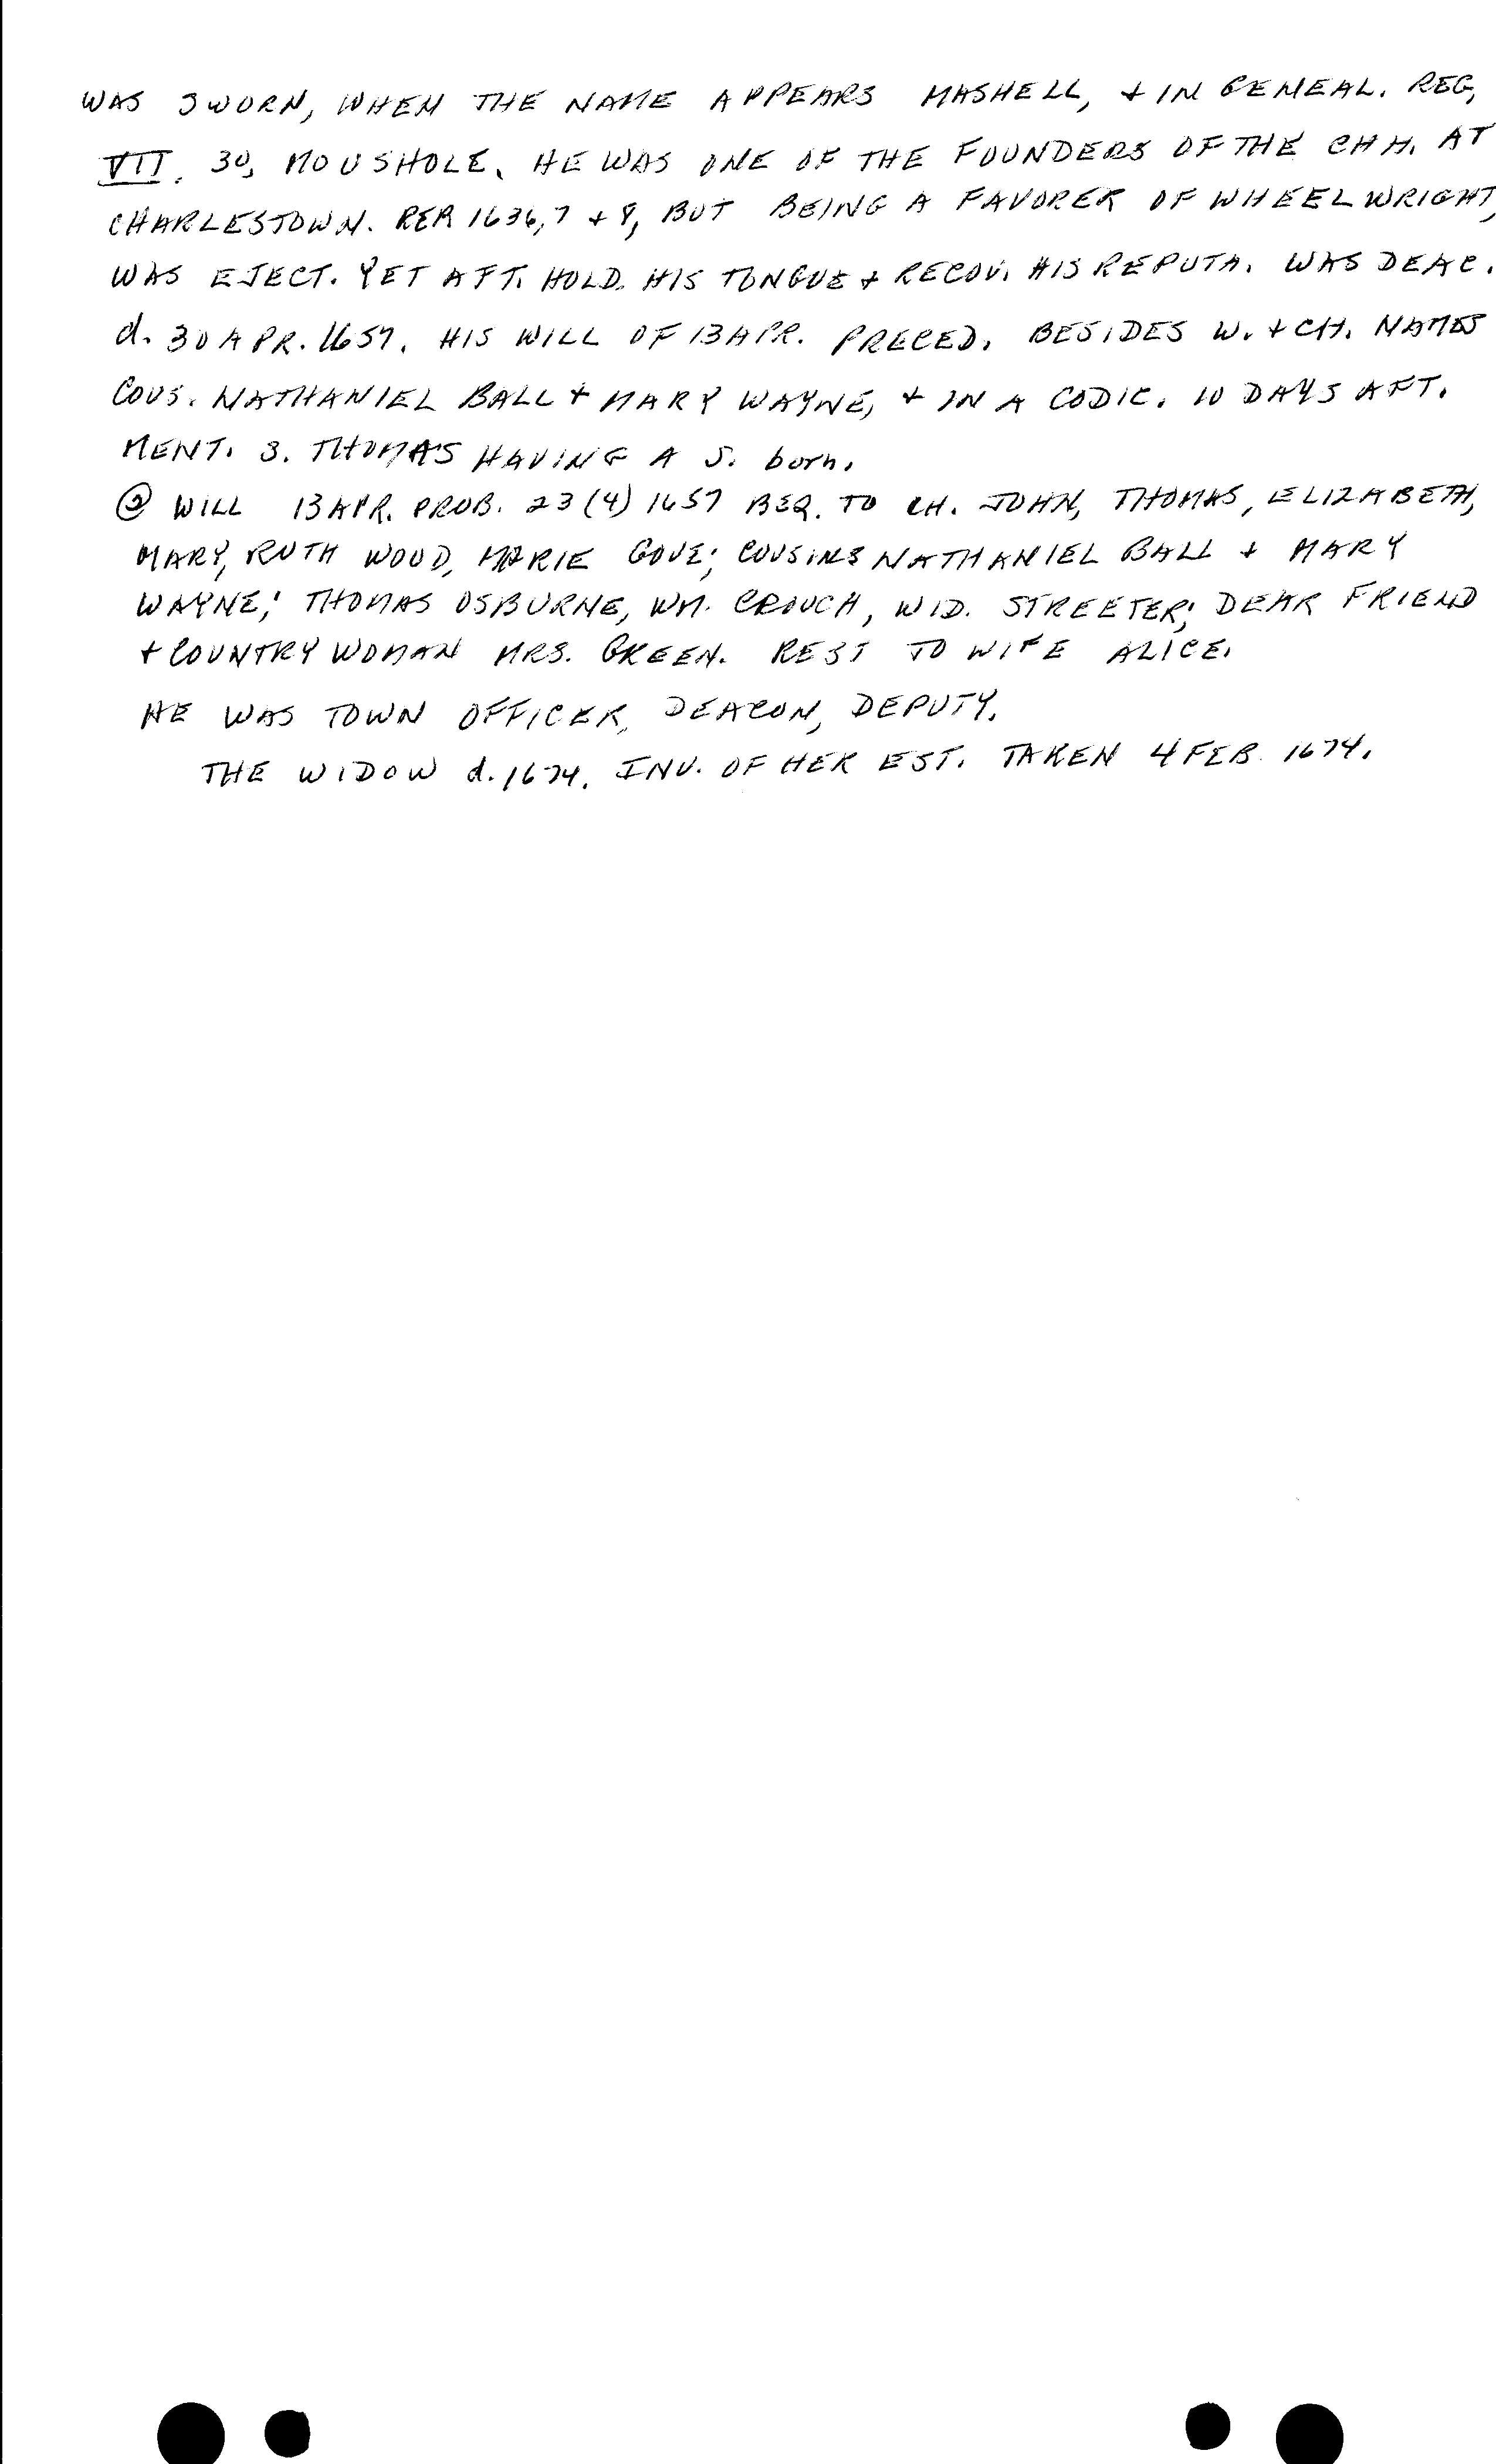 WAS SWORN, WHEN THE NAME APPEARS MASHELL, + IN GENEAL. REG,
VII. 30, MOUSHOLE. HE WAS ONE OF THE FOUNDERS OF THE CHH. AT
CHARLESTOWN. REP. 1636,7 + 8, BUT BEING A FAVORER OF WHEELWRIGHT,
WAS EJECT. YET AFT. HOLD. HIS TONGUE + RECOV. HIS REPUTA. WAS DEAC.
d. 30 APR. 1657. HIS WILL OF 13 APR. PRECED. BESIDES W. + CH. NAMES
COUS. NATHANIEL BALL + MARY WAYNE, + IN A CODIC. 10 DAYS AFT.
MENT. S. THOMAS HAVING A S. born.
② WILL 13 APR. PROB. 23 (4) 1657 BEQ. TO CH. JOHN, THOMAS, ELIZABETH,
MARY, RUTH WOOD, MARIE GOVE; COUSINS NATHANIEL BALL + MARY
WAYNE; THOMAS OSBURNE, WM. CROUCH, WID. STREETER; DEAR FRIEND
+ COUNTRY WOMAN MRS. GREEN. REST TO WIFE ALICE.
HE WAS TOWN OFFICER, DEACON, DEPUTY.
THE WIDOW d. 1674. INV. OF HER EST. TAKEN 4 FEB. 1674.